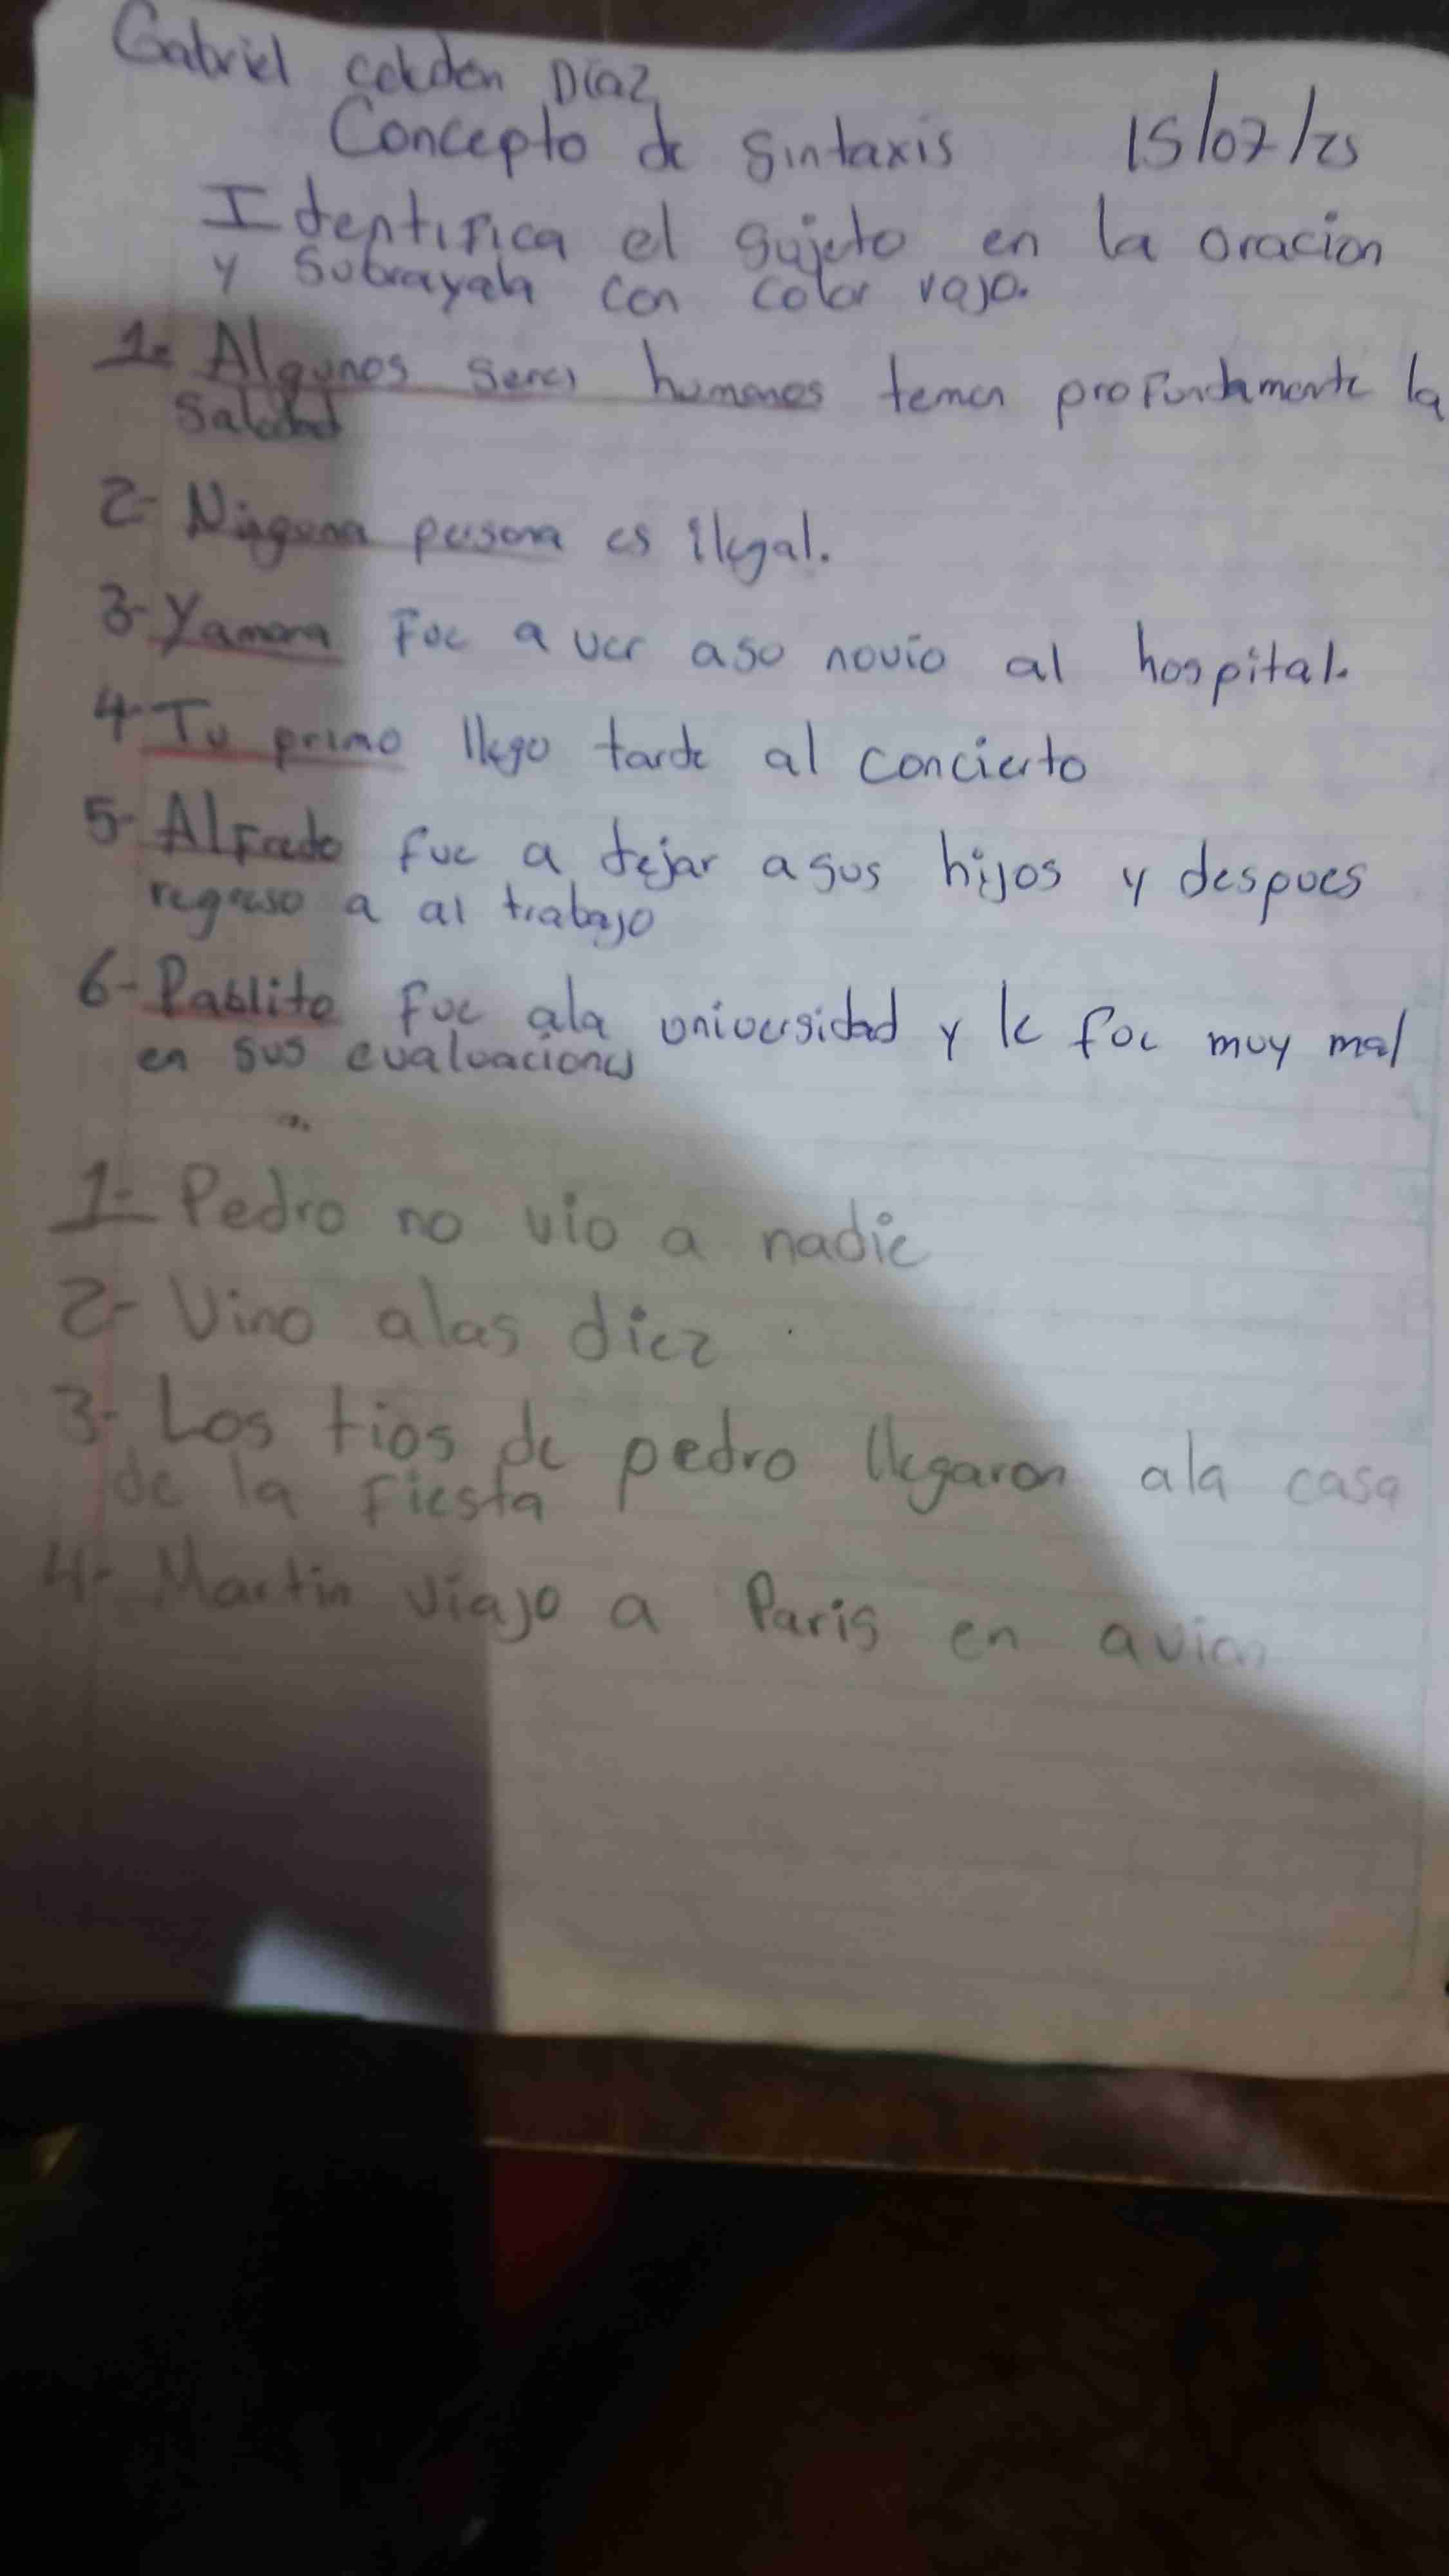 Gabriel Díaz
Concepto de Sintaxis 15/07/25
Identifica el sujeto en la oracion
y Subrayala con color rojo.
1. Algunos seres humanos temen profundamente la
2- Ninguna persona es ilegal.
3- Yamara Fue a ver aso novio al hospital.
4- Tu primo llego tarde al concierto
5- Alfredo fue a dejar asus hijos y despues
regreso a al trabajo
6- Pablito fue ala universidad y le fue muy mal
en sus evaluaciones
1- Pedro no vio a nadie
2- Vino alas diez
3- Los tios de pedro llegaron ala casa
de la Fiesta
4- Martin viajo a Paris en avion